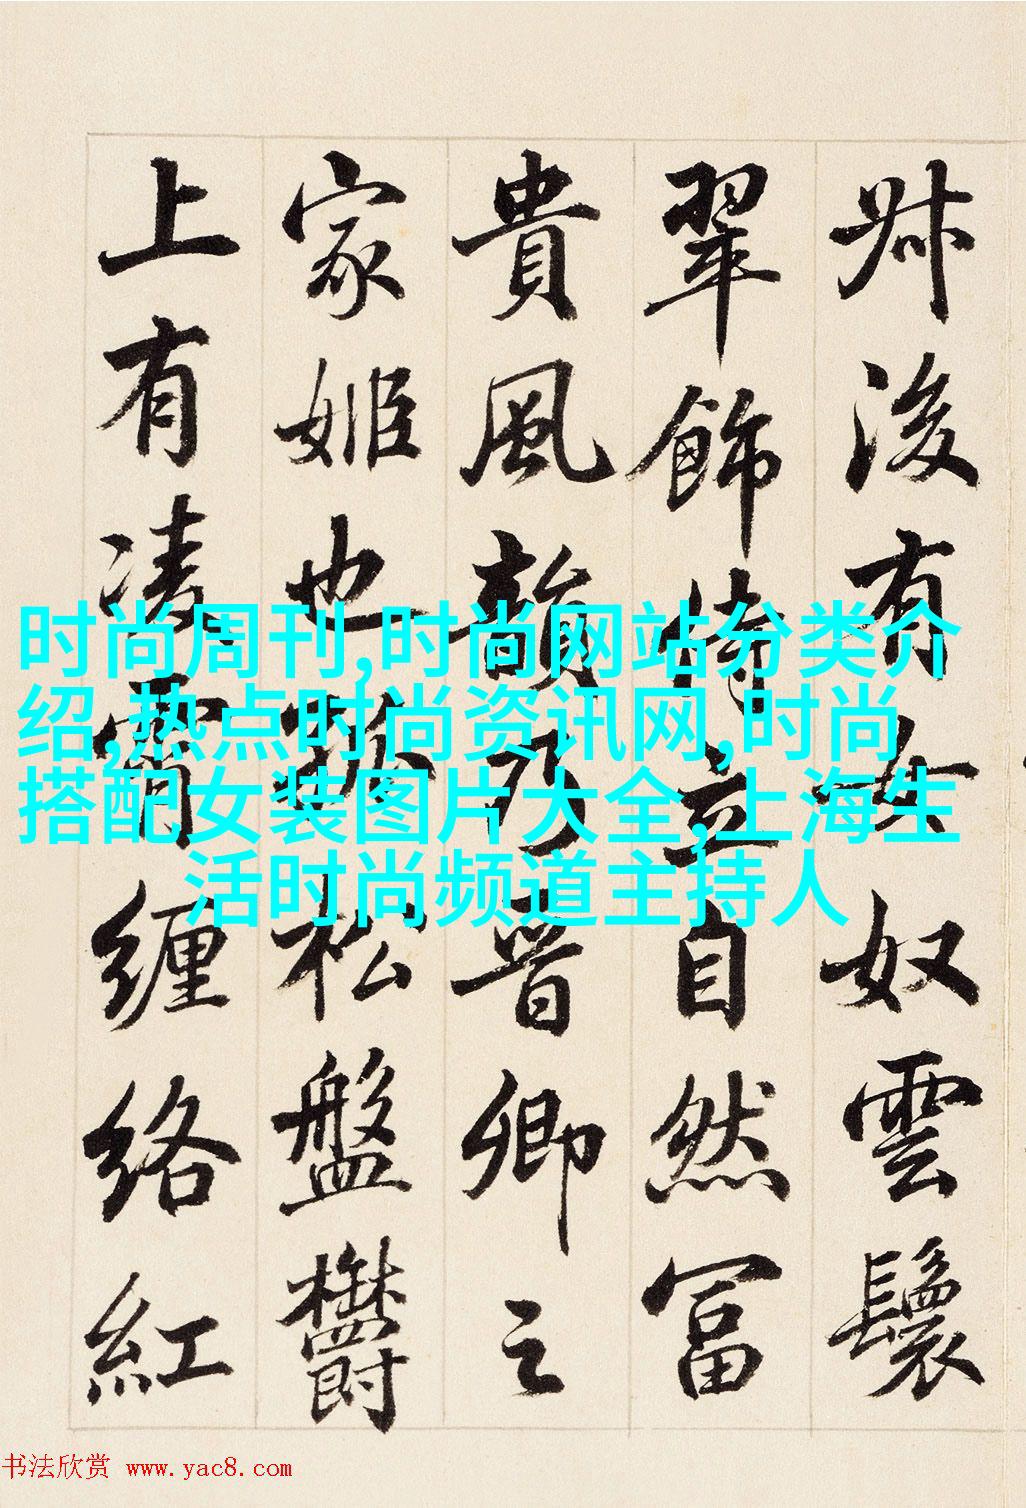 牀後有女奴雲鬟
翠飾倚立自然富
貴風韻乃晉卿之
家姬也孤松盤鬱
上有凌霄纏絡紅
时尚周刊,时尚网站分类介
绍,热点时尚资讯网,时尚
搭配女装图片大全,上海生
活时尚频道主持人
书法欣赏 www.yac8.com